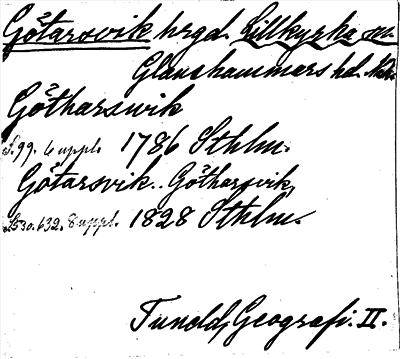 Götarsvik hrgd. Lillkyrka sn.
Glanshammars hd. När.
Götharswik
S. 99. 6 uppl. 1786 Sthlm.
Götarsvik. Götharsvik,
S. 530. 632. 8 uppl. 1828 Sthlm.
Tuneld, Geografi. II.